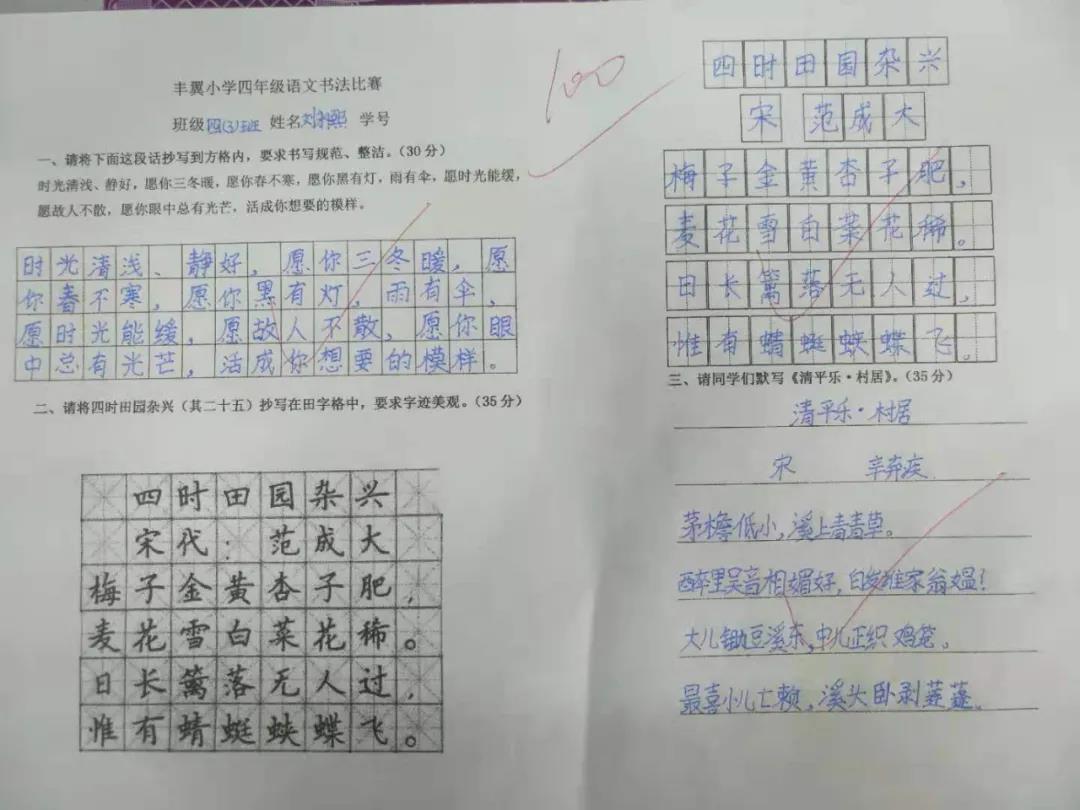 丰翼小学四年级语文书法比赛
班级四(3)班 姓名刘 熙 学号
一、请将下面这段话抄写到方格内，要求书写规范、整洁。（30分）
时光清浅、静好，愿你三冬暖，愿你春不寒，愿你黑有灯，雨有伞，愿时光能缓，
愿故人不散，愿你眼中总有光芒，活成你想要的模样。
时光清浅、静好，愿你三冬暖，愿
你春不寒，愿你黑有灯，雨有伞，
愿时光能缓，愿故人不散，愿你眼
中总有光芒，活成你想要的模样。
二、请将四时田园杂兴（其二十五）抄写在田字格中，要求字迹美观。（35分）
四时田园杂兴
宋代：范成大
梅子金黄杏子肥，
麦花雪白菜花稀。
日长篱落无人过，
惟有蜻蜓蛱蝶飞。
100
四时田园杂兴
宋 范成大
梅子金黄杏子肥，
麦花雪白菜花稀。
日长篱落无人过，
惟有蜻蜓蛱蝶飞。
三、请同学们默写《清平乐·村居》。（35分）
清平乐·村居
宋 辛弃疾
茅檐低小，溪上青青草。
醉里吴音相媚好，白发谁家翁媪！
大儿锄豆溪东，中儿正织鸡笼。
最喜小儿亡赖，溪头卧剥莲蓬。